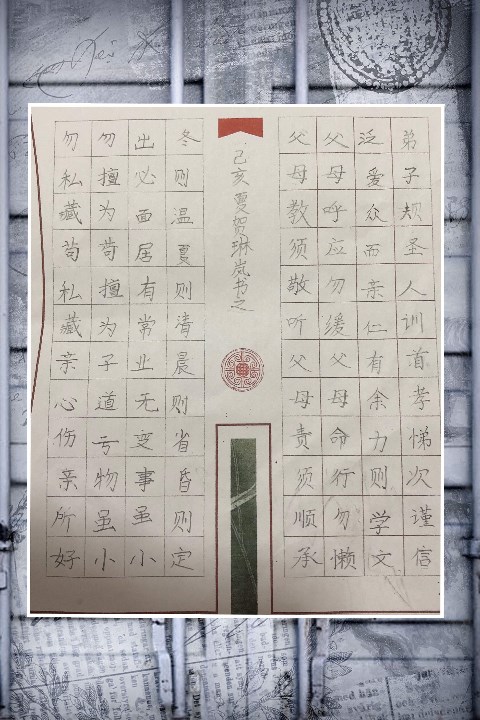 弟子规圣人训首孝悌次谨信
泛爱众而亲仁有余力则学文
父母呼应勿缓父母命行勿懒
父母教须敬听父母责须顺承
己亥夏贺琳岚书之
冬则温夏则清晨则省昏则定
出必面居有常业无变事虽小
勿擅为苟擅为子道亏物虽小
勿私藏苟私藏亲心伤亲所好